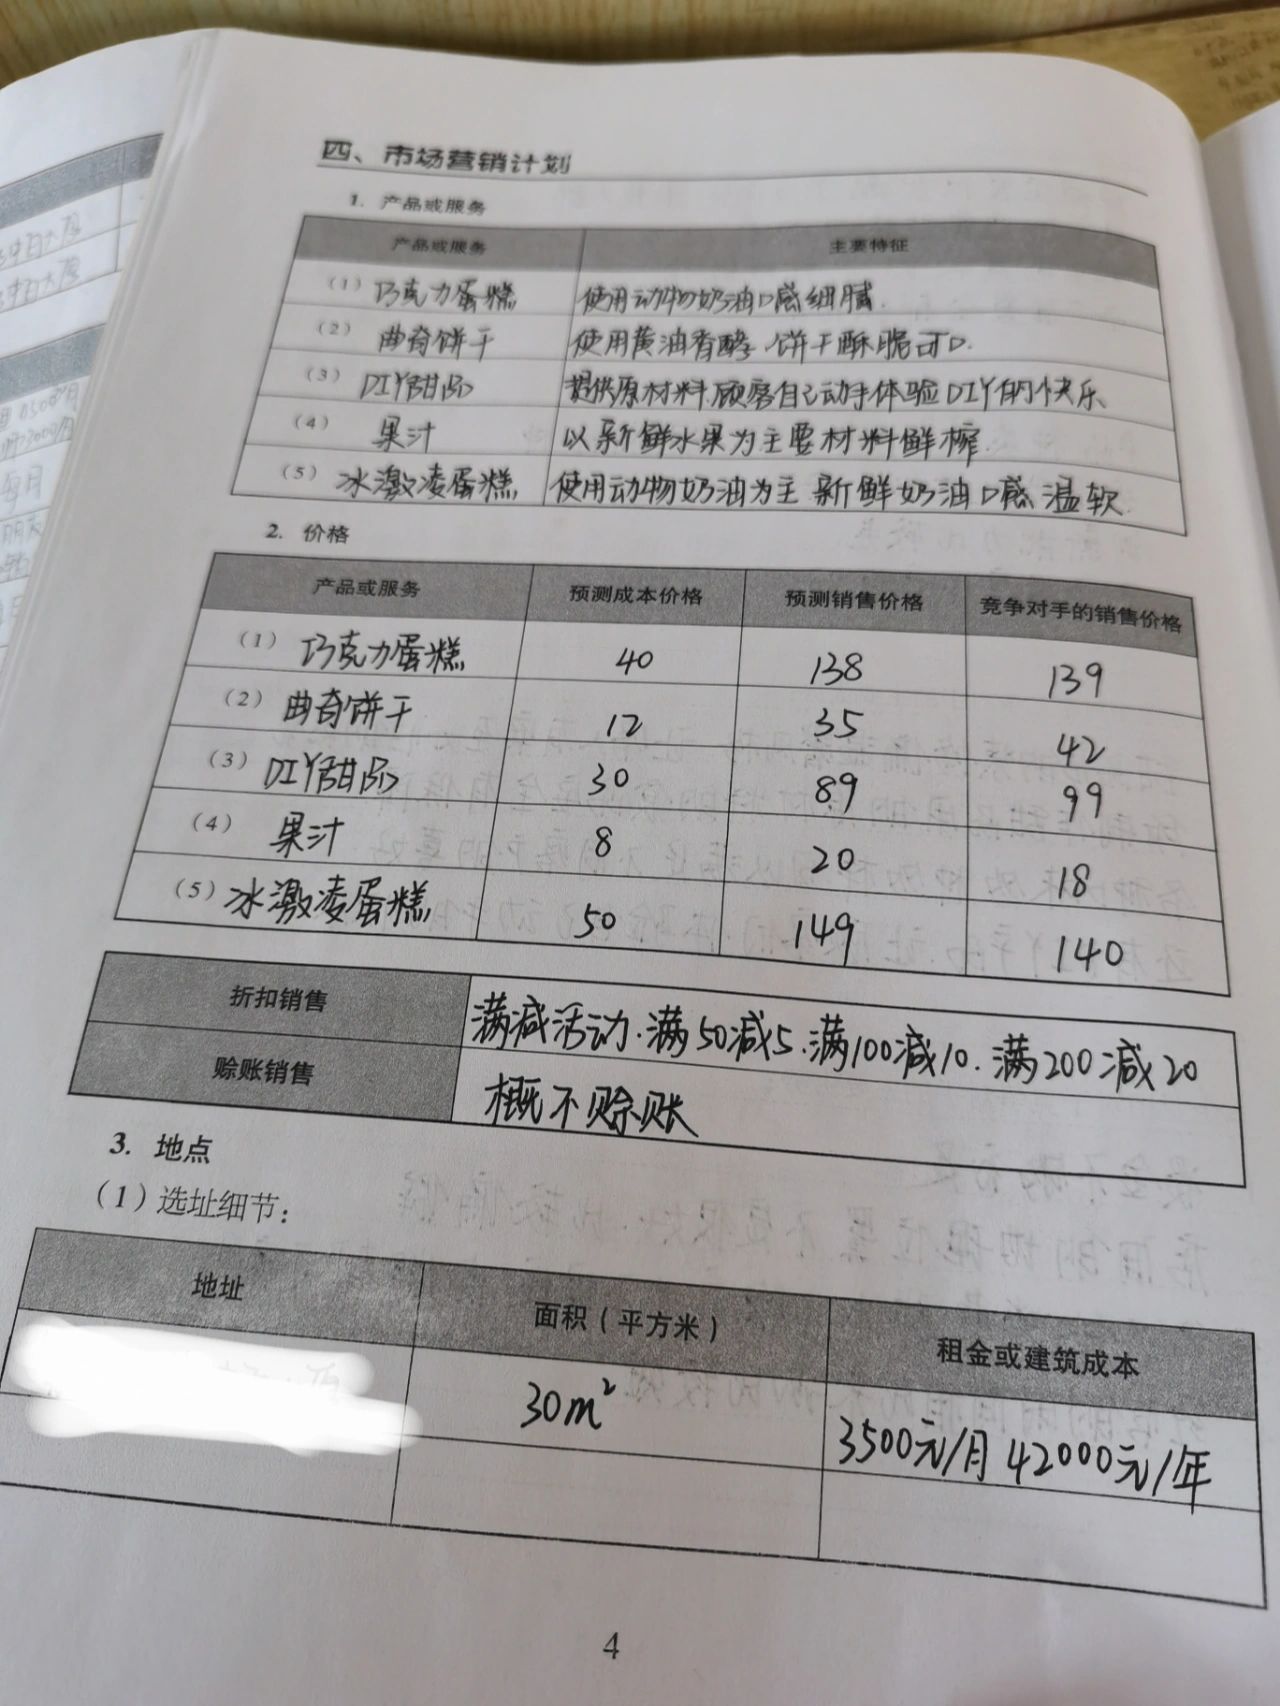 四、市场营销计划
1. 产品或服务
产品或服务 主要特征
(1) 巧克力蛋糕 使用动物奶油口感细腻.
(2) 曲奇饼干 使用黄油香醇、饼干酥脆可口.
(3) DIY甜品 提供原材料,顾客自己动手体验DIY的快乐、
(4) 果汁 以新鲜水果为主要材料鲜榨.
(5) 冰激凌蛋糕 使用动物奶油为主 新鲜奶油口感温软.
2. 价格
产品或服务 预测成本价格 预测销售价格 竞争对手的销售价格
(1) 巧克力蛋糕 40 138 139
(2) 曲奇饼干 12 35 42
(3) DIY甜品 30 89 99
(4) 果汁 8 20 18
(5) 冰激凌蛋糕 50 149 140
折扣销售 满减活动.满50减5.满100减10.满200减20
赊账销售 概不赊账
3. 地点
(1)选址细节:
地址 面积(平方米) 租金或建筑成本
30m² 3500元/月 42000元/年
4